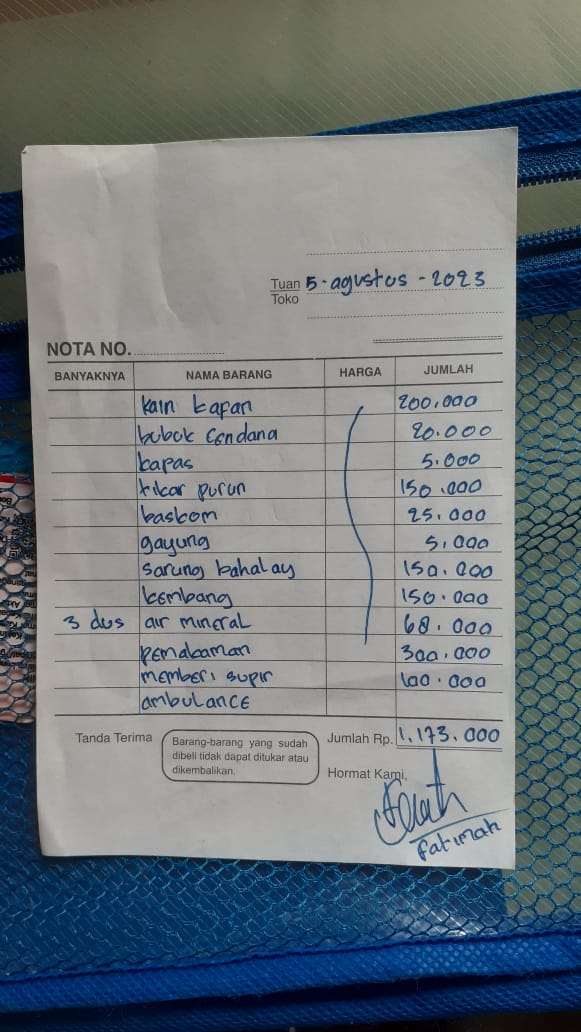 Tuan 5-agustus-2023
Toko
NOTA NO.
BANYAKNYA NAMA BARANG HARGA JUMLAH
kain kafan 200.000
bubok cendana 20.000
kapas 5.000
tikar purun 150.000
baskom 25.000
gayung 5.000
sarung bahalay 150.000
kembang 150.000
3 dus air mineral 68.000
pemakaman 300.000
memberi supir 100.000
ambulance
Tanda Terima
Barang-barang yang sudah
dibeli tidak dapat ditukar atau
dikembalikan.
Jumlah Rp. 1.173.000
Hormat Kami,
Fatimah